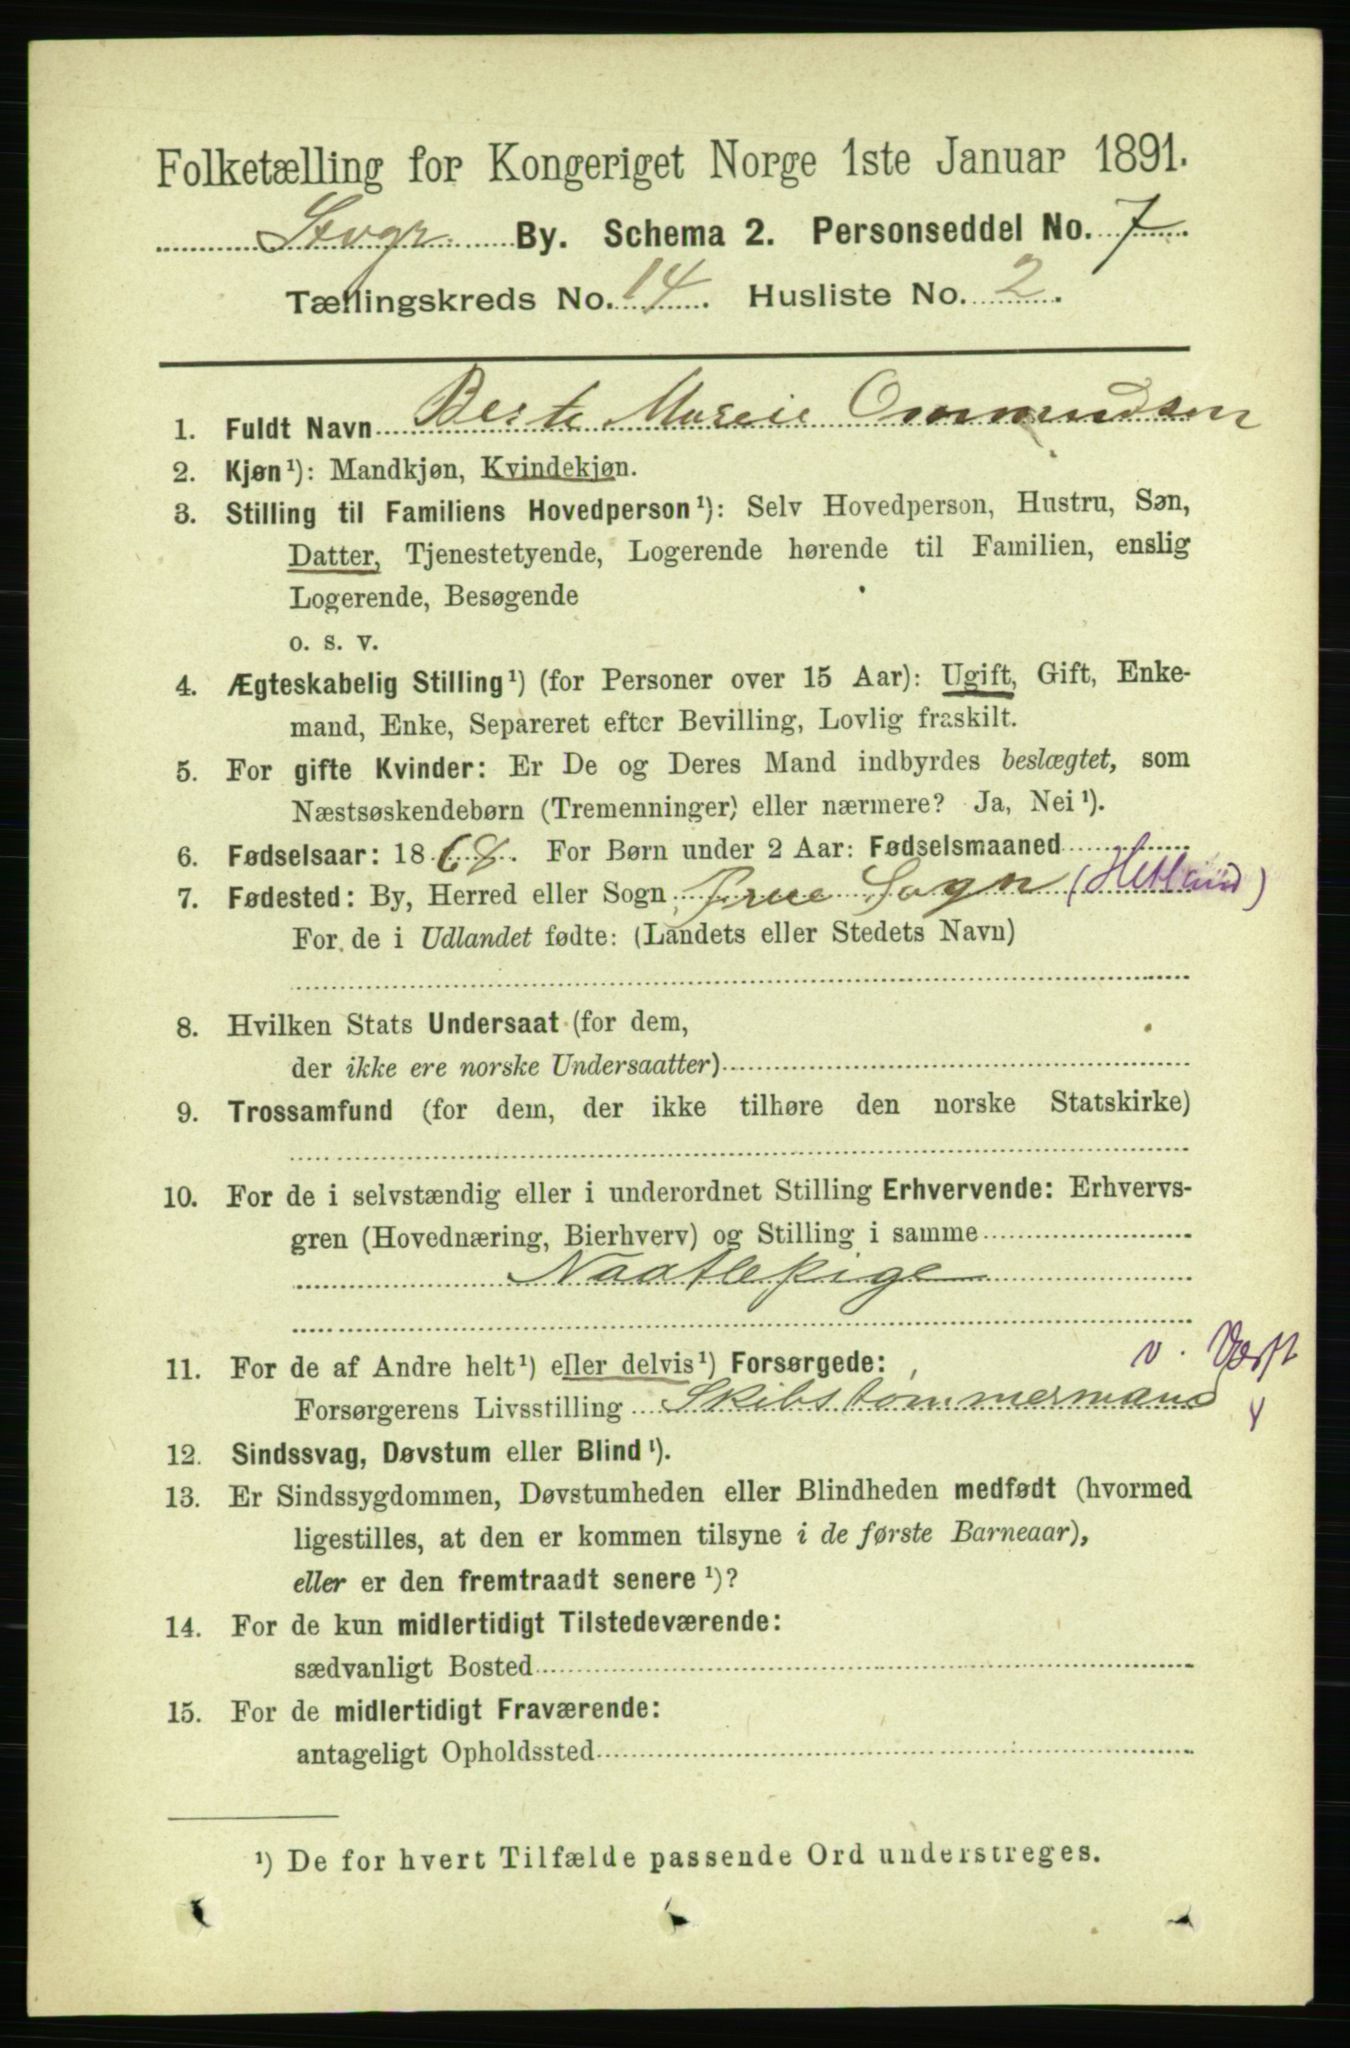 Folketælling for Kongeriget Norge 1ste Januar 1891.
Stvgr By. Schema 2. Personseddel No. 7
Tællingskreds No. 14. Husliste No. 2.
1. Fuldt Navn Berte Marie Ommundsen
2. Kjøn¹): Mandkjøn, Kvindekjøn.
3. Stilling til Familiens Hovedperson¹): Selv Hovedperson, Hustru, Søn,
Datter, Tjenestetyende, Logerende hørende til Familien, enslig
Logerende, Besøgende
o. s. v.
4. Ægteskabelig Stilling¹) (for Personer over 15 Aar): Ugift, Gift, Enke-
mand, Enke, Separeret efter Bevilling, Lovlig fraskilt.
5. For gifte Kvinder: Er De og Deres Mand indbyrdes beslægtet, som
Næstsøskendebørn (Tremenninger) eller nærmere? Ja, Nei¹).
6. Fødselsaar: 1868. For Børn under 2 Aar: Fødselsmaaned
7. Fødested: By, Herred eller Sogn Frue Sogn (Hetland)
For de i Udlandet fødte: (Landets eller Stedets Navn)
8. Hvilken Stats Undersaat (for dem,
der ikke ere norske Undersaatter)
9. Trossamfund (for dem, der ikke tilhøre den norske Statskirke)
10. For de i selvstændig eller i underordnet Stilling Erhvervende: Erhvervs-
gren (Hovednæring, Bierhverv) og Stilling i samme
Naatlepige
v. Værft
11. For de af Andre helt¹) eller delvis¹) Forsørgede:
Forsørgerens Livsstilling Skibstømmermand
12. Sindssvag, Døvstum eller Blind¹).
13. Er Sindssygdommen, Døvstumheden eller Blindheden medfødt (hvormed
ligestilles, at den er kommen tilsyne i de første Barneaar),
eller er den fremtraadt senere¹)?
14. For de kun midlertidigt Tilstedeværende:
sædvanligt Bosted
15. For de midlertidigt Fraværende:
antageligt Opholdssted
¹) De for hvert Tilfælde passende Ord understreges.